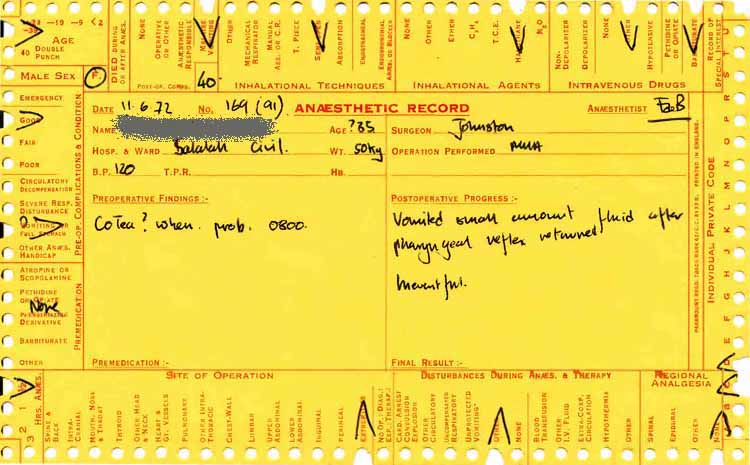 -19 -9 <2
AGE
40 DOUBLE PUNCH
MALE SEX F.
DIED DURING OR AFTER ANÆS.
NONE
OPERATIVE OR OTHER
ANÆSTHETIC RESPONSIBLE
OTHER
MECHANICAL RESPIRATOR
MANUAL ASS. OR C.R.
T. PIECE
ABSORPTION
ENDOTRACHEAL
NONE
OTHER
ETHER
C₃H₆
T.C.E.
N₂O
NONE
NON-DEPOLARIZER
DEPOLARIZER
OTHER
HYPOTENSIVE
PETHIDINE OR OPIATE
BARBITURATE
RECORD OF SPECIAL INTEREST
POST-OP. COMPS. 40.
INHALATIONAL TECHNIQUES
INHALATIONAL AGENTS
INTRAVENOUS DRUGS
EMERGENCY
GOOD
FAIR
POOR
CIRCULATORY DECOMPENSATION
SEVERE RESP. DISTURBANCE
VOMITING OR FULL STOMACH
OTHER ANÆS. HANDICAP
PRE-OP. COMPLICATIONS & CONDITION
ATROPINE OR SCOPOLAMINE
PETHIDINE OR OPIATE
None
PHENOTHIAZINE DERIVATIVE
BARBITURATE
OTHER
PREMEDICATION
DATE 11.6.72 NO. 169 (91) ANÆSTHETIC RECORD ANÆSTHETIST
NAME AGE ?35 SURGEON Johnston
HOSP. & WARD Salalah Civil. WT. 50kg OPERATION PERFORMED MUA
B.P. 120 T.P.R. HB.
PREOPERATIVE FINDINGS :- POSTOPERATIVE PROGRESS :-
CoTea? when. prob. 0800. Vomited small amount fluid after
pharyngeal reflex returned
Uneventful.
PREMEDICATION :- FINAL RESULT :-
PRINTED IN ENGLAND.
INDIVIDUAL PRIVATE CODE
D E F G H I J K L M N O P Q R S T U V W X Y Z
SITE OF OPERATION
DISTURBANCES DURING ANÆS. & THERAPY
REGIONAL ANALGESIA
3 2 1 ½
HRS. ANÆS.
SPINE & BACK
INTRA-CRANIAL
MOUTH, NOSE & THROAT
THYROID
OTHER HEAD & NECK
HEART & GT. VESSELS
PULMONARY
OTHER INTRA-THORACIC
CHEST-WALL
LUMBAR
UPPER ABDOMINAL
LOWER ABDOMINAL
INGUINAL
PERINEAL
EXTREMITIES
NO OP.: DIAG.: EXP. THERAP.:
CARD. ARREST
CONVULSION
EXPLOSION
OTHER CIRCULATORY
UNCOMPENSATED RESPIRATORY
UNPROTECTED VOMITING
OTHER
NONE
BLOOD TRANSFUSION
OTHER I.V. FLUID
EXTRA-CORP. CIRCULATION
HYPOTHERMIA
OTHER
SPINAL
EPIDURAL
OTHER
NONE